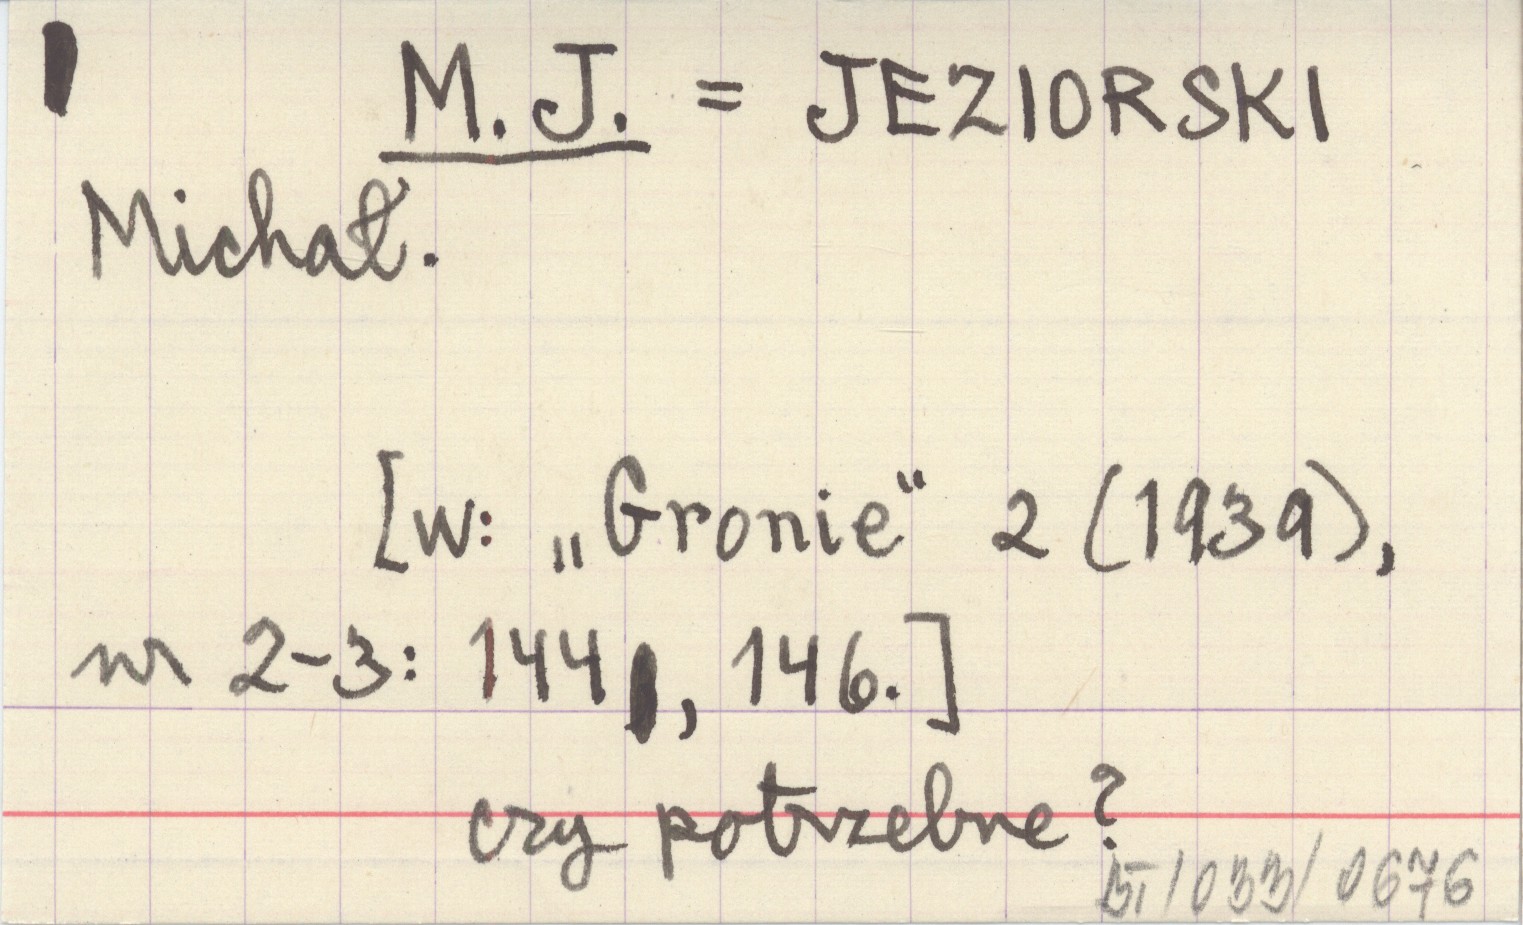 M. J. = JEZIORSKI
Michał.
[w: „Gronie" 2 (1939),
nr 2-3: 144, 146.]
czy potrzebne?
/033/0676